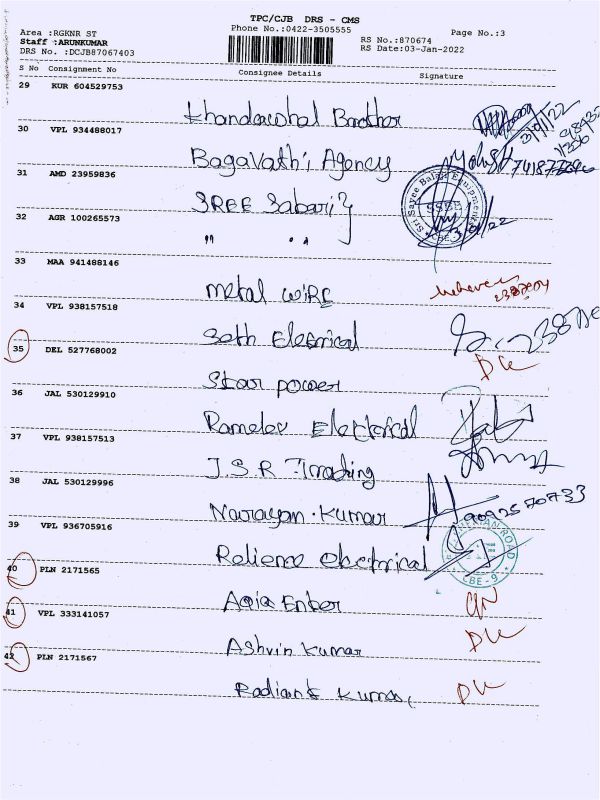 TPC/CJB DRS - CMS
Phone No.:0422-3505555
Page No.:3
Area :RGKNR ST
Staff :ARUNKUMAR
DRS No. :DCJB87067403
RS No.:870674
RS Date:03-Jan-2022
S No Consignment No Consignee Details Signature
29 KUR 604529753
Khandarohal Brother
30 VPL 934488017
Bagavathi Agency
31 AMD 23959836
SREE Sabari
32 AGR 100265573
" "
33 MAA 941488146
metal wiRE
34 VPL 938157518
Seth Electrical
35 DEL 527768002
Star power
36 JAL 530129910
Ramdev Electrical
37 VPL 938157513
J.S.R Trading
38 JAL 530129996
Narayan.Kumar
39 VPL 936705916
Relience electrical
40 PLN 2171565
Aqia Enter
41 VPL 333141057
Ashvin Kumar
42 PLN 2171567
Radiant Kumar